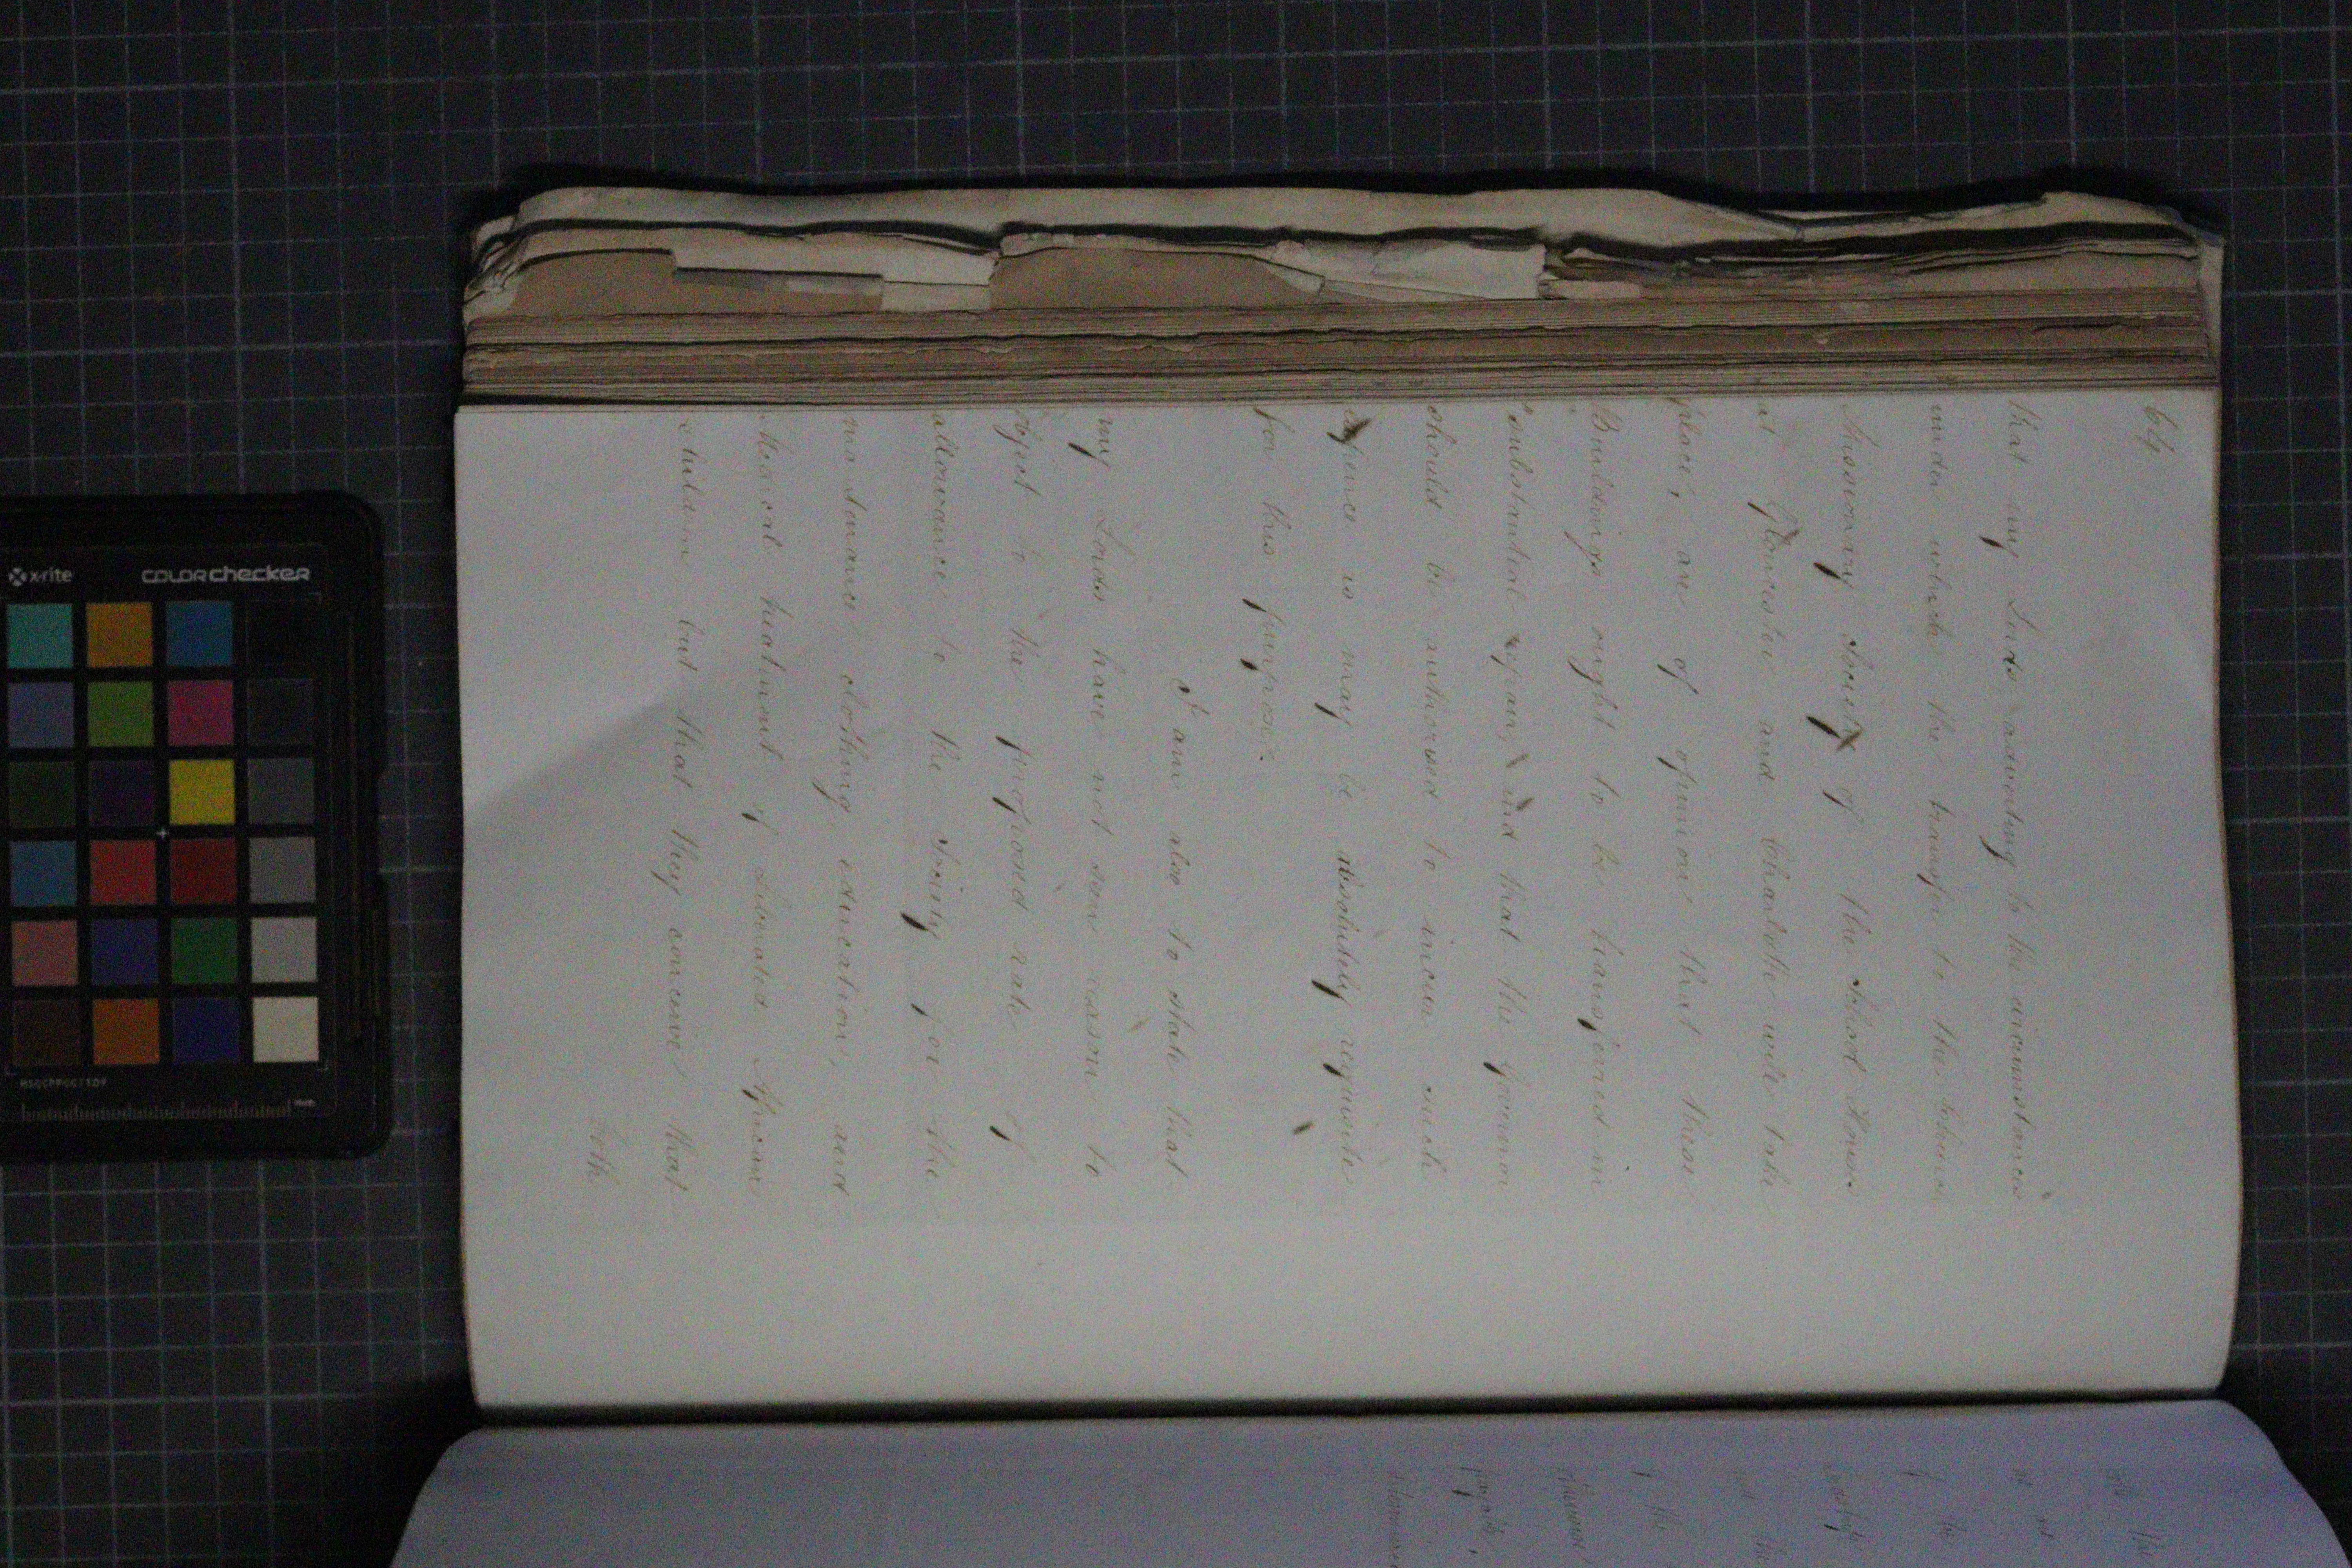 64
that my Lords adverting to the circumstances
under which the transfer to the Church
Missionary Society of the School House
at Gloucester and Charlotte will take
place, are of opinion that these
Buildings ought to be transferred in
substantial repair, and that the Governor
should be authorised to incur such
expence as may be absolutely requisite
for this purpose.
I am also to state that
my Lords have not seen reason to
object to the proposed rate of
allowance to the Society for the
maintenance clothing, education, and
Medical treatment of Liberated African
children but that they conceive that
both
x-rite
COLORchecker
of the